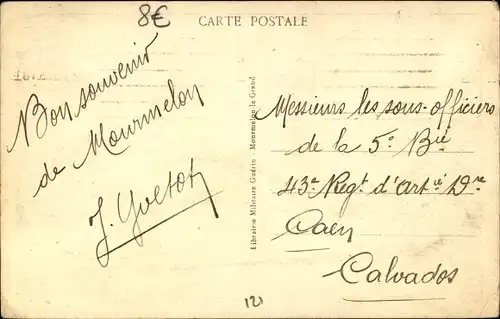 8€
CARTE POSTALE
Bon souvenir
de Mourmelon
J. Yvetot
Librairie Militaire Guérin - Mourmelon-le-Grand
Messieurs les sous-officiers
de la 5º Bie
43e Regt d'Artie 19re
Caen
Calvados
121